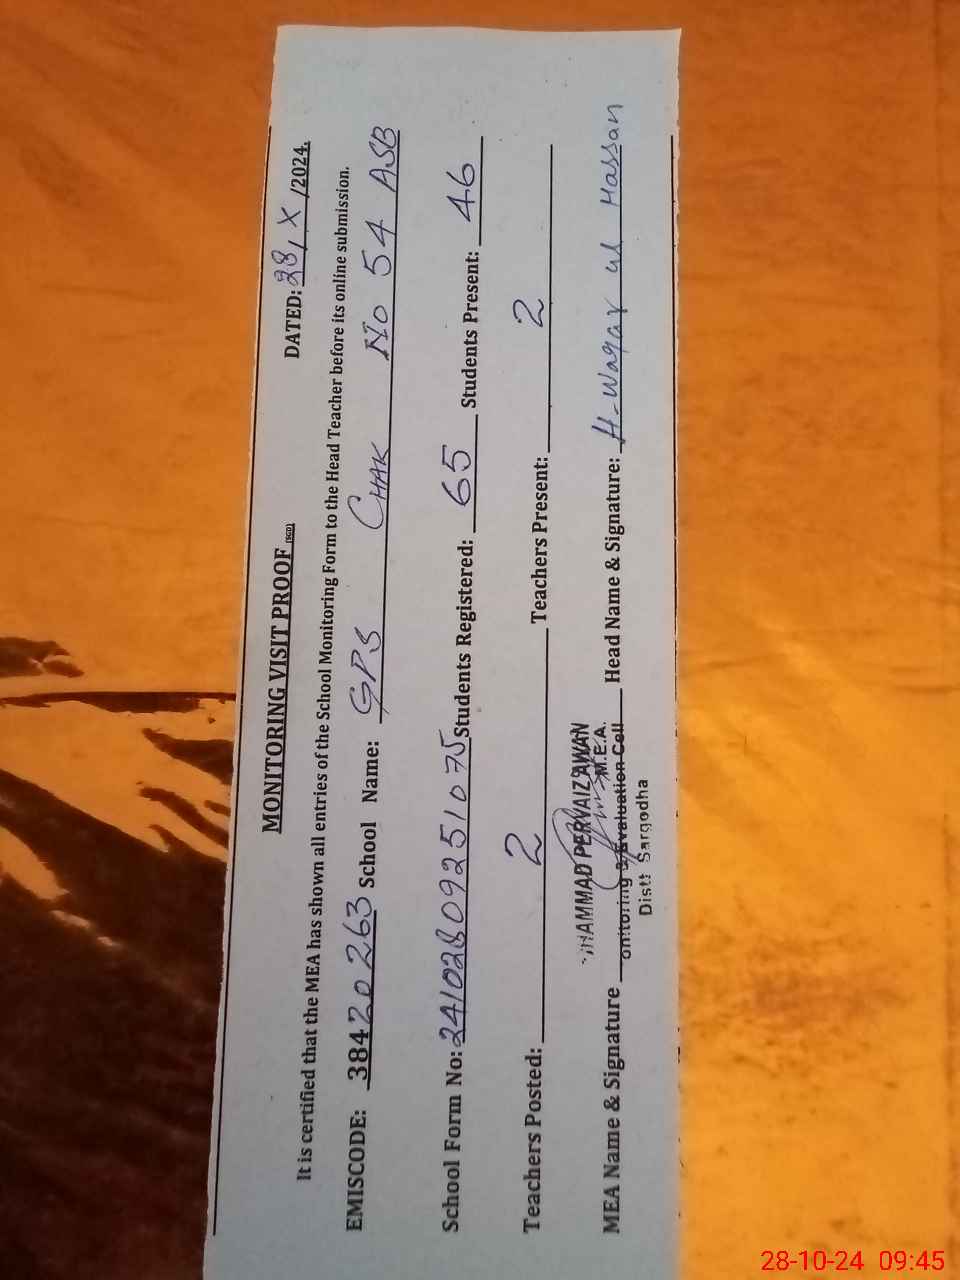 MONITORING VISIT PROOF (SGD)
DATED: 28/X/2024.
It is certified that the MEA has shown all entries of the School Monitoring Form to the Head Teacher before its online submission.
EMISCODE: 38420263 School Name: GPS CHAK No 54 ASB
School Form No: 241028092510 75 Students Registered: 65 Students Present: 46
Teachers Posted: 2 Teachers Present: 2
HAMMAD PERVAIZ AWAN
M.E.A.
MEA Name & Signature onitoring & Evaluation Cell Head Name & Signature: H-Waqar ul Hassan
Distt Sargodha
28-10-24 09:45